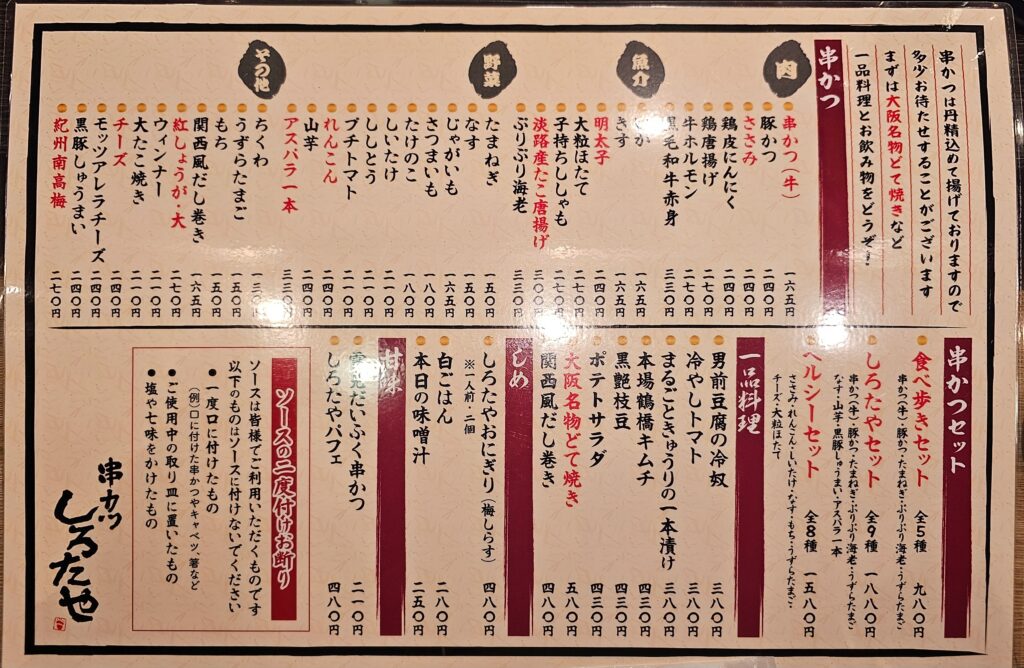 串かつは丹精込め揚げておりますので
多少お待たせすることがございます
まずは大阪名物どて焼きなど
一品料理とお飲み物をどうぞ！
串かつ
肉
串かつ（牛） 一六五円
豚かつ 二四〇円
ささみ 二四〇円
鶏皮にんにく
鶏唐揚げ 二七〇円
牛ホルモン
黒毛和牛赤身 三三〇円
魚介
いか 一六五円
きす 一六五円
明太子 二七〇円
大粒ほたて 二七〇円
子持ちししゃも 二四〇円
淡路産たこ唐揚げ 三〇〇円
ぷりぷり海老 三三〇円
野菜
たまねぎ 一五〇円
なす 一五〇円
じゃがいも 一六五円
さつまいも 一八〇円
たけのこ 一八〇円
しいたけ 二一〇円
ししとう 二一〇円
プチトマト 二一〇円
れんこん 二四〇円
山芋 二四〇円
アスパラ一本 三三〇円
その他
ちくわ
うずらたまご 一五〇円
もち 一五〇円
関西風だし巻き 一六五円
紅しょうが・大 二七〇円
ウィンナー 二一〇円
大たこ焼き 二一〇円
チーズ 二四〇円
モッツアレラチーズ 二四〇円
黒豚しゅうまい 二七〇円
紀州南高梅 二七〇円
串かつセット
食べ歩きセット 全5種 九八〇円
串かつ（牛）・豚かつ・たまねぎ・ぷりぷり海老・うずらたまご
しろたやセット 全9種 一八八〇円
串かつ（牛）・豚かつ・たまねぎ・ぷりぷり海老・うずらたまご
なす・山芋・黒豚しゅうまい・アスパラ一本
ヘルシーセット 全8種 一五八〇円
ささみ・れんこん・しいたけ・なす・もち・うずらたまご
チーズ・大粒ほたて
一品料理
男前豆腐の冷奴 三八〇円
冷やしトマト 三八〇円
まるごときゅうりの一本漬け 三八〇円
本場鶴橋キムチ 四三〇円
黒艶枝豆 四三〇円
ポテトサラダ 四三〇円
大阪名物どて焼き 五八〇円
関西風だし巻き 四八〇円
しめ
しろたやおにぎり（梅しらす） 四八〇円
※一人前・二個
白ごはん 二八〇円
本日の味噌汁 二五〇円
甘味
雪見だいふく串かつ 二一〇円
しろたやパフェ 四八〇円
ソースの二度付けお断り
ソースは皆様でご利用いただくものです
以下のものはソースに付けないでください
●一度口に付けたもの
（例）口に付けた串かつやキャベツ、箸など
●ご使用中の取り皿に置いたもの
●塩や七味をかけたもの
串カツ
しろたや